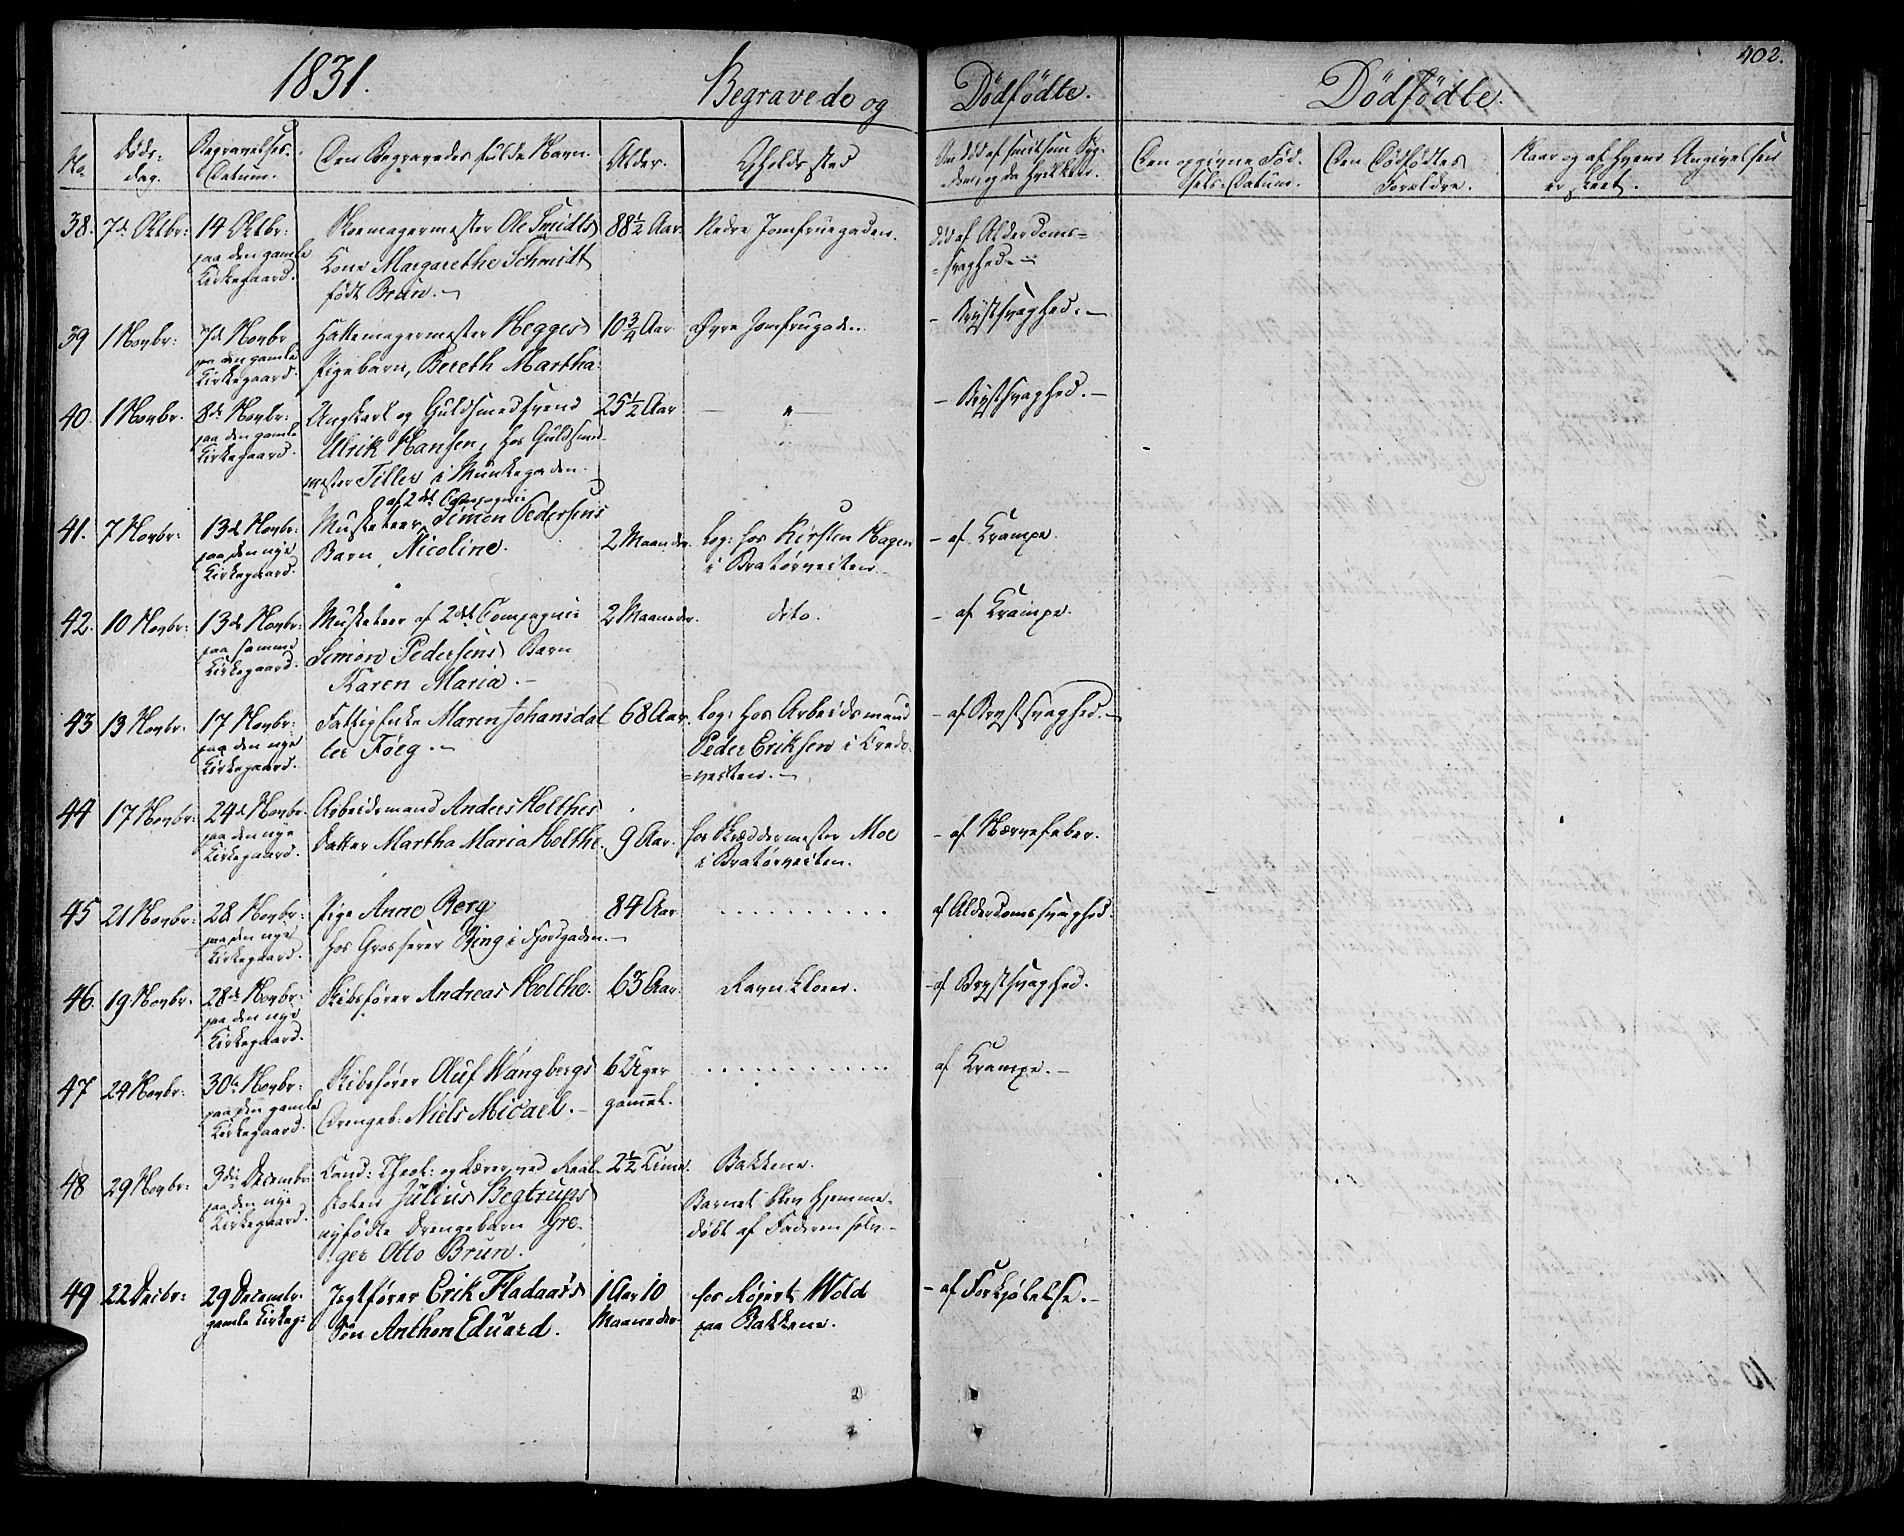 402.
1831. Begravede og Dödfödte. Dödfödte.
No
Døds-
dag.
Begravelses-
Datum.
Den Begravedes fulde Navn.
Alder.
Opholdssted
Om død af smitsom Syg-
dom, og da hvilken.
Den opgivne Fød-
sels-Datum.
Den Dødfødtes
Forældre.
Naar og af hvem Angivelsen
er skeet.
38. 7de Octbr: 14 Octbr:
paa den gamle
Kirkegaard.
Skomagermester Ole Smidts
Kone Margarethe Schmidt
født Brun.
88½ Aar Nedre Jomfruegaden.
død af Alderdoms-
svaghed.
39 1 Novbr: 7de Novbr
paa den gamle
Kirkegaard.
Hattemagermester Hegges
Pigebarn, Bereth Martha.
10¾ Aar Øvre Jomfrugade.
- Brystsvaghed.
40. 1 Novbr. 8de Novbr:
paa den gamle
Kirkegaard.
Ungkarl og Guldsmedsvend
Ulrik Hansen, hos Guldsmed-
mester Tiller i Munkegaden.
25½ Aar - " -
- Brystsvaghed.
41. 7 Novbr: 13de Novbr:
paa den nye
Kirkegaard.
af 2det Compagnie
Musketeer Simon Pedersens
Barn, Nicoline.
2 Maaneder. Log: hos Kirsten Hagen
i Bratørveiten.
- af Krampe.
42. 10 Novbr: 13de Novbr:
paa samme
Kirkegaard.
Musketeer af 2det Compagnie
Simon Pedersens Barn
Karen Maria.
2 Maaneder. dito.
- af Krampe.
43 13 Novbr: 17 Novbr:
paa den nye
Kirkegaard.
Fattigenke Maren Johansdat
ter Föeg.
68 Aar. Log: hos Arbeidsmand
Peder Eriksen i Credo-
veiten.
- af Brystsvaghed.
44 17 Novbr: 24de Novbr.
paa den nye
Kirkegaard.
Arbeidsmand Anders Holthes
Datter Martha Maria Holthe.
9 Aar. hos Skræddermester Moe
i Bratørveiten.
- af Nervefeber.
45 21 Novbr: 28 Novbr:
paa den nye
Kirkegaard.
Pige Anne Berg
hos Grosserer Bing i Fjordgaden.
84 Aar . . . . . . . . . .
af Alderdomssvaghed.
46. 19 Novbr. 28de Novbr:
paa den nye
Kirkegaard.
Skibsfører Andreas Holthe. 63 Aar. Ravnkloen.
- af Brystsvaghed.
47 24 Novbr: 30te Novbr:
paa den gamle
Kirkegaard.
Skibsfører Oluf Wangbergs
Drengeb: Niels Micael.
6 Uger
gammel.
. . . . . . . . . .
af Krampe.
48 29 Novbr: 3die Decembr:
paa den nye
Kirkegaard.
Cand: Theol: og Lærer ved Real-
skolen Julius Begtrups
nyfødte Drengebarn Gre-
ger Otto Brun.
2½ Time. Bakkene.
Barnet blev hjemme-
døbt af Faderen selv.
49 22 Decbr: 29 Decembr.
gamle Kirkeg:
Jegtfører Erik Fladaas's
Søn Anthon Eduard.
1 Aar 10
Maaneder.
hos Rejert Wold
paa Bakkene.
- af Forkjølelse.